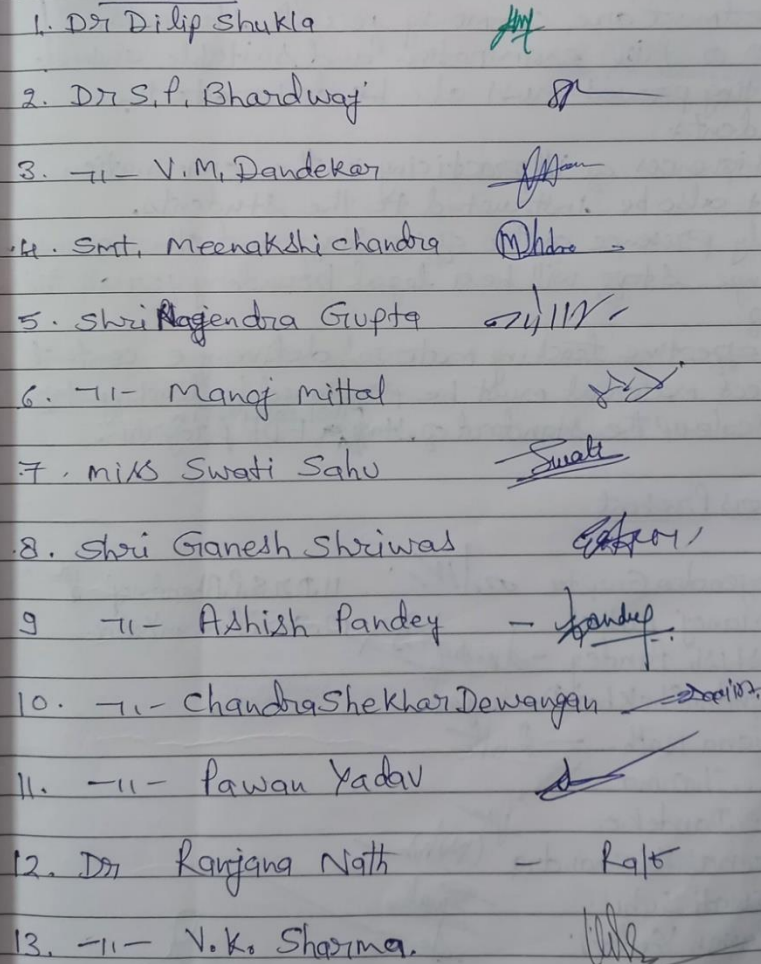 1. Dr Dilip Shukla
2. Dr S.P. Bhardwaj
3. -11- V.M. Dandekar
4. Smt. Meenakshi Chandra
5. Shri Nagendra Gupta
6. -11- Manoj Mittal
7. Miss Swati Sahu Swati
8. Shri Ganesh Shriwas
9 -11- Ashish Pandey - Pandey
10. -11- Chandra Shekhar Dewangan
11. -11- Pawan Yadav
12. Dr Ranjana Nath -
13. -11- V.K. Sharma.